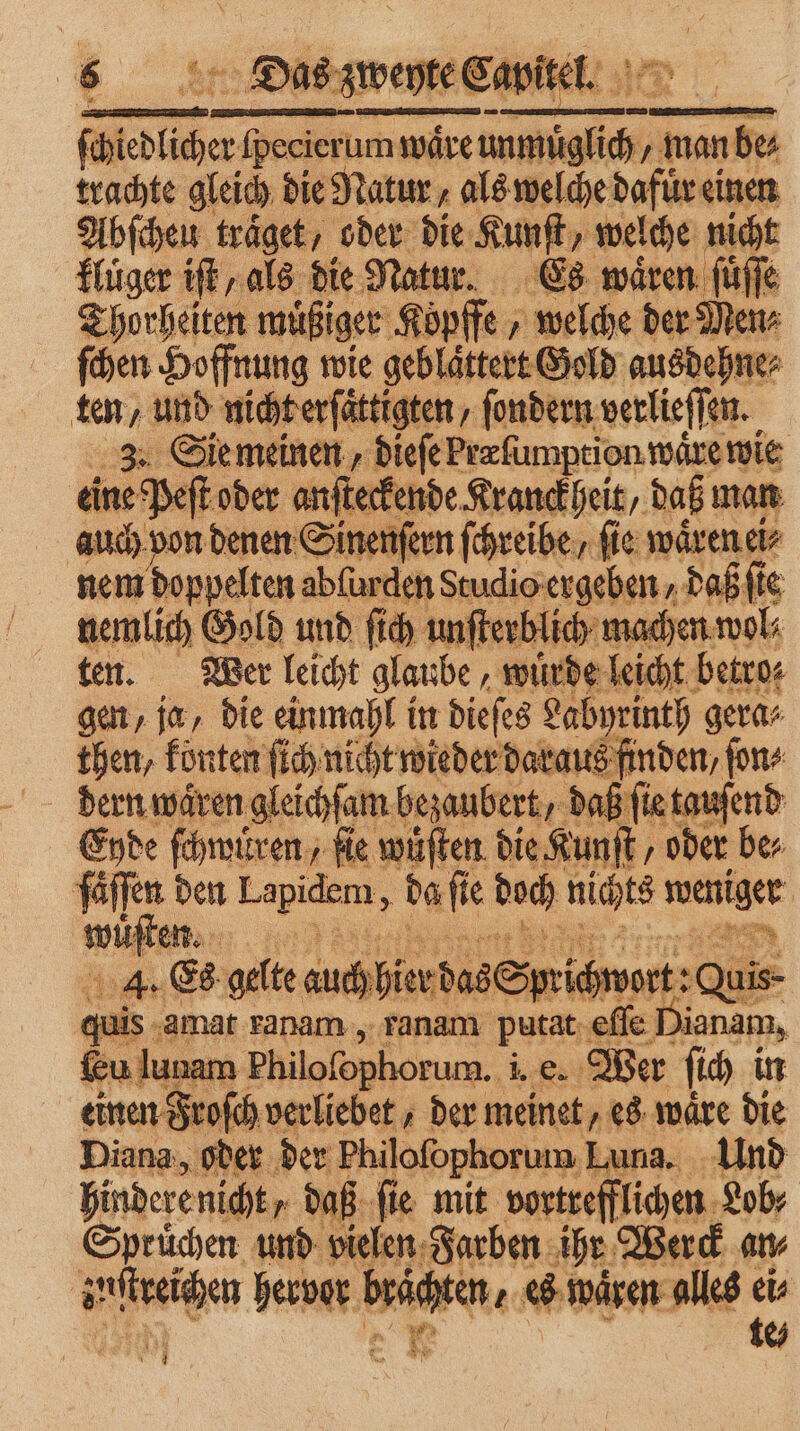 6 Das zweyte Capitel.
ſchiedlicher ſpecierum waͤre unmuͤglich / man be⸗
trachte gleich die Natur / als welche dafuͤr einen
Abſcheu traͤget / oder die Kunſt / welche nicht
kluͤger iſt / als die Natur. Es waͤren ſuͤſſe
Thorheiten muͤßiger Koͤpffe / welche der Men⸗
ſchen Hoffnung wie geblaͤttert Gold ausdehne⸗
ten / und nicht erſaͤttigten / ſondern verlieſſen.
3. Sie meinen / dieſe Præſumption waͤre wie
eine Peſt oder anſteckende Kranckheit / daß man
auch von denen Sinenſern ſchreibe / ſie waͤren ei⸗
nem doppelten abſurden Studio ergeben / daß ſie
nemlich Gold und ſich unſterblich machen wol⸗
ten. Wer leicht glaube / wuͤrde leicht betro⸗
gen / ja / die einmahl in dieſes Labyrinth gera⸗
then / koͤnten ſich nicht wieder daraus finden / ſon⸗
dern waͤren gleichſam bezaubert / daß ſie tauſend
Eyde ſchwuͤren / ſie wuͤſten die Kunſt / oder be⸗
ſaͤſſen den Lapidem, da ſie doch nichts weniger
wuͤſten.
4. Es gelte auch hier das Sprichwort: Quis-
quis amat ranam, ranam putat eſſe Dianam,
ſeu lunam Philoſophorum. i. e. Wer ſich in
einen Froſch verliebet / der meinet / es waͤre die
Diana, oder der Philoſophorum Luna. Und
hindere nicht / daß ſie mit vortrefflichen Lob⸗
Spruͤchen und vielen Farben ihr Werck an⸗
zuſtreichen hervor braͤchten / es waͤren alles ei⸗
te⸗